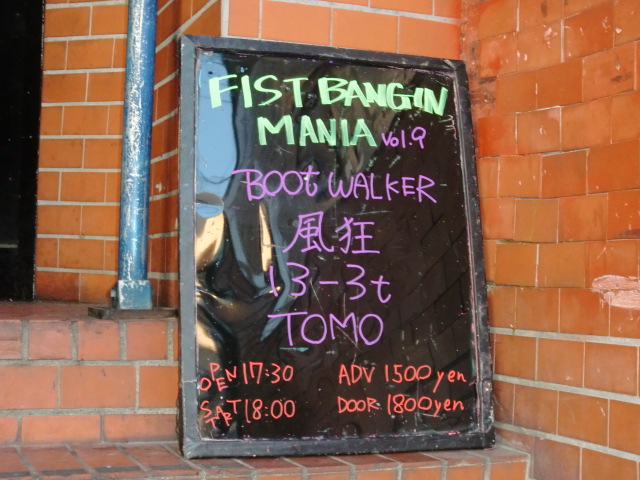 FIST BANGIN
MANIA Vol.9
BOOt WALKER
風狂
13-3t
TOMO
OPEN 17:30 ADV 1500 yen
START 18:00 DOOR 1800 yen